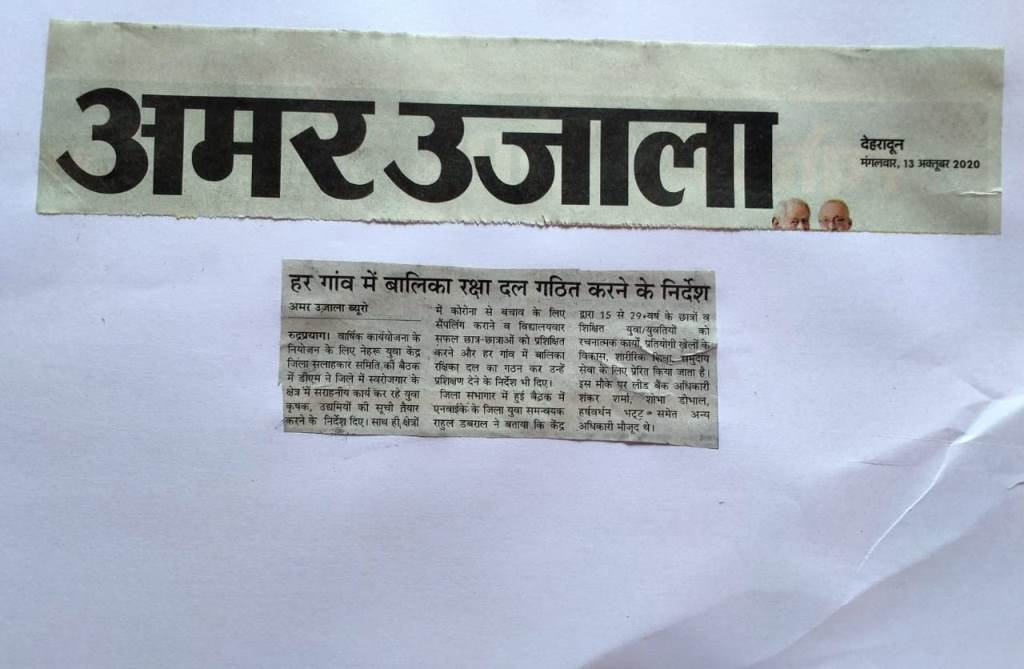 अमर उजाला
देहरादून
मंगलवार, 13 अक्तूबर 2020
हर गांव में बालिका रक्षा दल गठित करने के निर्देश
अमर उजाला ब्यूरो
रुद्रप्रयाग। वार्षिक कार्ययोजना के
नियोजन के लिए नेहरू युवा केंद्र
जिला सलाहकार समिति की बैठक
में डीएम ने जिले में स्वरोजगार के
क्षेत्र में सराहनीय कार्य कर रहे युवा
कृषक, उद्यमियों की सूची तैयार
करने के निर्देश दिए। साथ ही क्षेत्रों
में कोरोना से बचाव के लिए
सैंपलिंग कराने व विद्यालयवार
सफल छात्र-छात्राओं को प्रशिक्षित
करने और हर गांव में बालिका
रक्षिका दल का गठन कर उन्हें
प्रशिक्षण देने के निर्देश भी दिए।
जिला सभागार में हुई बैठक में
एनवाईके के जिला युवा समन्वयक
राहुल डबराल ने बताया कि केंद्र
द्वारा 15 से 29 वर्ष के छात्रों व
शिक्षित युवा/युवतियों को
रचनात्मक कार्यों, प्रतियोगी खेलों के
विकास, शारीरिक शिक्षा, समुदाय
सेवा के लिए प्रेरित किया जाता है।
इस मौके पर लीड बैंक अधिकारी
शंकर शर्मा, शोभा डोभाल,
हर्षवर्धन भट्ट समेत अन्य
अधिकारी मौजूद थे।